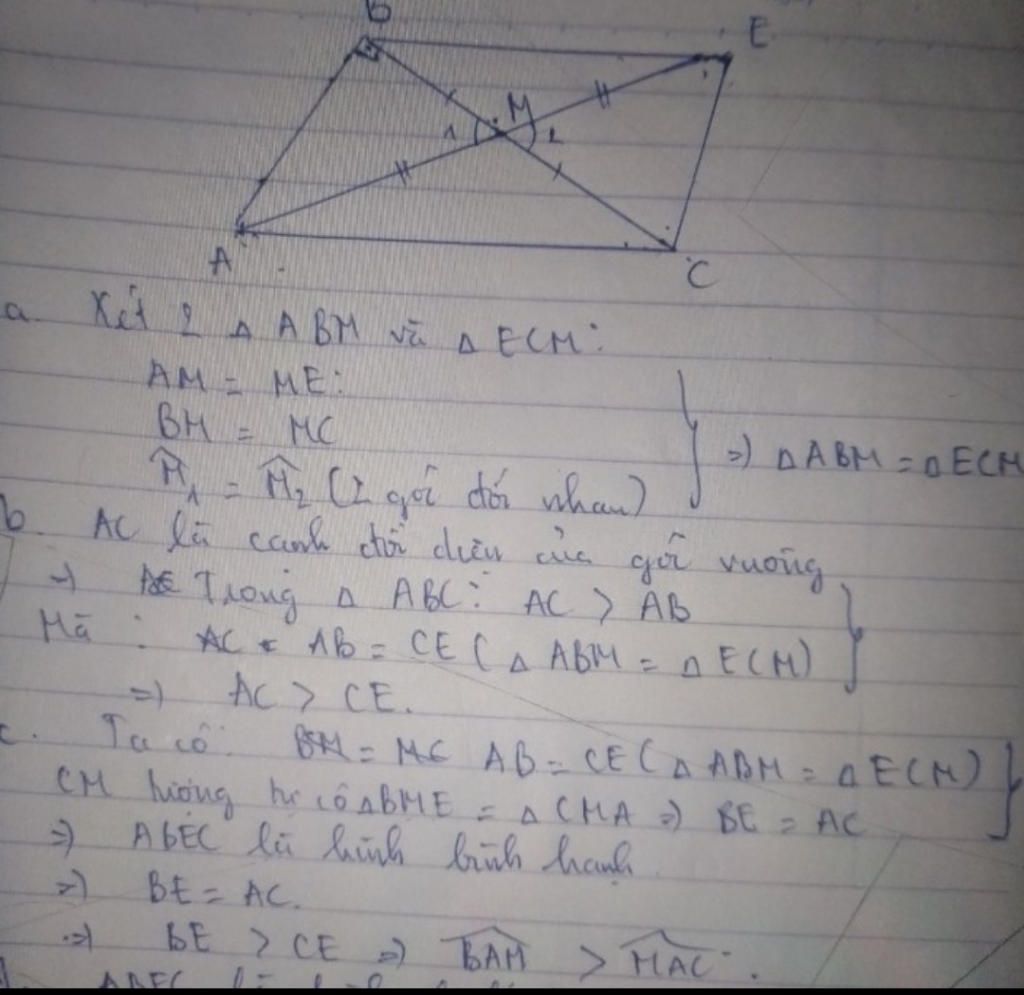 B
E
M
1
2
A
C
a. Xét 2 Δ ABM và Δ ECM:
AM = ME:
BM = MC
M̂₁ = M̂₂ (2 góc đối nhau)
} => Δ ABM = Δ ECM
b. AC là cạnh đối diện của góc vuông
-> Trong Δ ABC: AC > AB
Mà : AB = CE (Δ ABM = Δ ECM) }
=> AC > CE.
c. Ta có: AB = CE (Δ ABM = Δ ECM) }
CM tương tự có Δ BME = Δ CMA => BE = AC
=> ABEC là hình bình hành
=> BE = AC.
=> BE > CE => BAM > MAC.
ABEC là